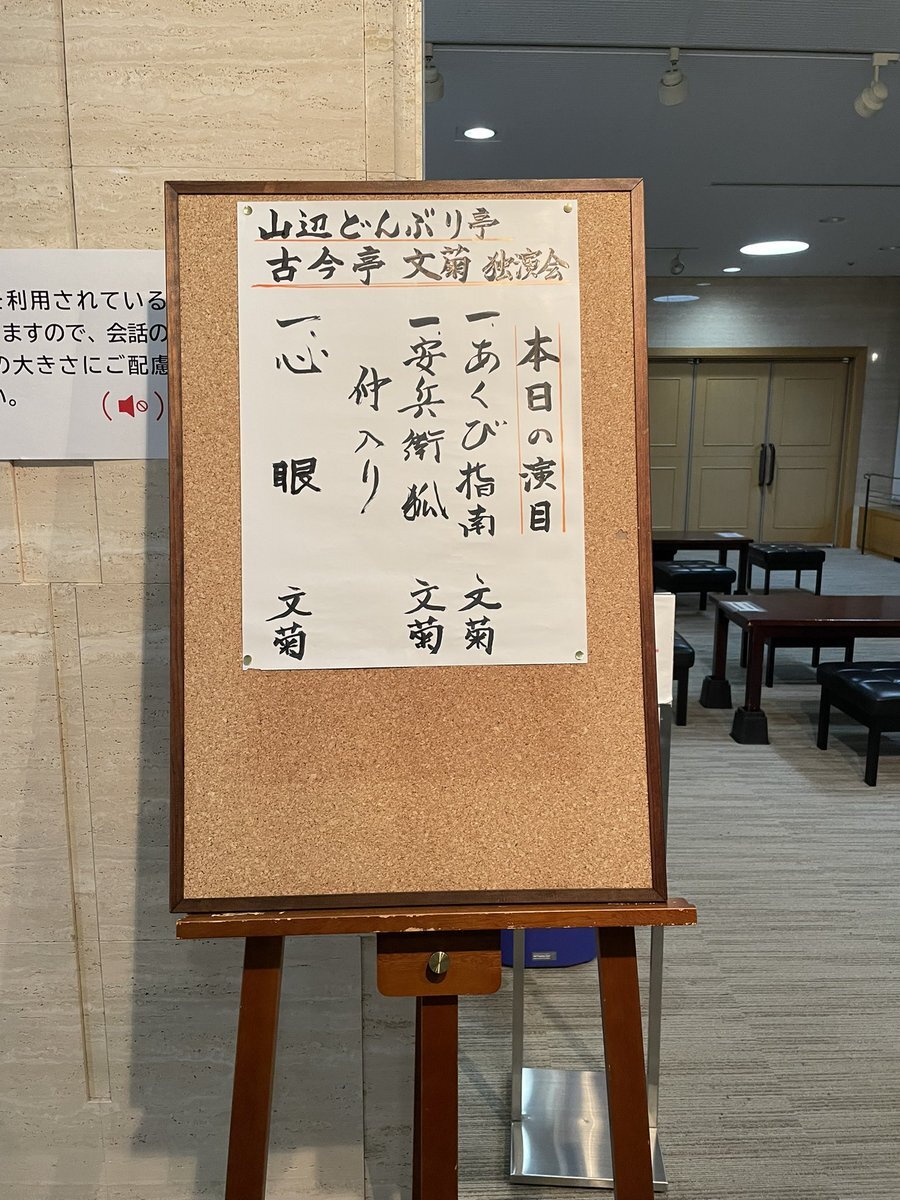 山辺どんぶり亭
古今亭 文菊 独演会
本日の演目
一、あくび指南 文菊
一、安兵衛狐 文菊
仲入り
一、心眼 文菊
利用されている
ますので、会話の
の大きさにご配慮
い。